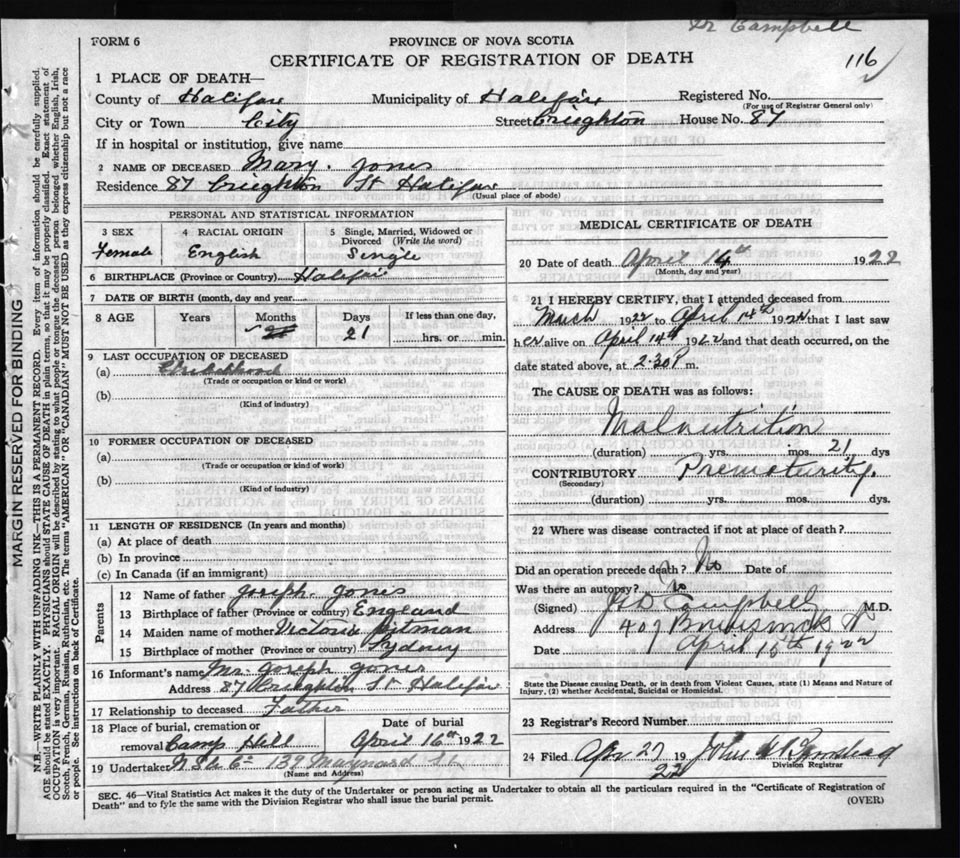 Dr Campbell
FORM 6
PROVINCE OF NOVA SCOTIA
CERTIFICATE OF REGISTRATION OF DEATH
116
1 PLACE OF DEATH—
County of Halifax Municipality of Halifax Registered No.
(For use of Registrar General only)
City or Town City Street Creighton House No. 87
If in hospital or institution, give name
2 NAME OF DECEASED Mary. Jones
Residence 87 Creighton St Halifax
(Usual place of abode)
PERSONAL AND STATISTICAL INFORMATION
3 SEX Female
4 RACIAL ORIGIN English
5 Single, Married, Widowed or Divorced (Write the word) Single
6 BIRTHPLACE (Province or Country) Halifax
7 DATE OF BIRTH (month, day and year)
8 AGE Years Months Days 21 If less than one day, hrs. or min.
9 LAST OCCUPATION OF DECEASED
(a)
(Trade or occupation or kind or work)
(b)
(Kind of industry)
10 FORMER OCCUPATION OF DECEASED
(a)
(Trade or occupation or kind of work)
(b)
(Kind of industry)
11 LENGTH OF RESIDENCE (In years and months)
(a) At place of death
(b) In province
(c) In Canada (if an immigrant)
Parents
12 Name of father Joseph. Jones
13 Birthplace of father (Province or country) England
14 Maiden name of mother Victoria Pitman
15 Birthplace of mother (Province or country) Sydney
16 Informant's name Mr. Joseph Jones
Address 87 Creighton St Halifax
17 Relationship to deceased Father
18 Place of burial, cremation or removal Camp Hill Date of burial April 16th 1922
19 Undertaker 139 Maynard St
(Name and Address)
MEDICAL CERTIFICATE OF DEATH
20 Date of death April 14th 1922
(Month, day and year)
21 I HEREBY CERTIFY, that I attended deceased from
March 1922 to April 14th 1922 that I last saw
her alive on April 14th 1922 and that death occurred, on the
date stated above, at 2.30 P m.
The CAUSE OF DEATH was as follows:
Malnutrition
(duration) yrs. mos. 21 dys
CONTRIBUTORY Prematurity.
(Secondary)
(duration) yrs. mos. dys.
22 Where was disease contracted if not at place of death?
Did an operation precede death? No Date of
Was there an autopsy? No
(Signed) Campbell M.D.
Address 407 St
Date April 15th 1922
State the Disease causing Death, or in death from Violent Causes, state (1) Means and Nature of
Injury, (2) whether Accidental, Suicidal or Homicidal.
23 Registrar's Record Number
24 Filed Apr 27 19 22 John
Division Registrar
SEC. 46—Vital Statistics Act makes it the duty of the Undertaker or person acting as Undertaker to obtain all the particulars required in the "Certificate of Registration of
Death" and to fyle the same with the Division Registrar who shall issue the burial permit.
(OVER)
MARGIN RESERVED FOR BINDING
N.B.—WRITE PLAINLY WITH UNFADING INK—THIS IS A PERMANENT RECORD. Every item of information should be carefully supplied.
AGE should be stated EXACTLY. PHYSICIANS should STATE CAUSE OF DEATH in plain terms, so that it may be properly classified. Exact statement of
OCCUPATION is very important. RACIAL ORIGIN will be described by stating to what people or tongue the deceased person belonged whether English, Irish,
Scotch, French, German, Russian, Ruthenian, etc. The terms "AMERICAN" or "CANADIAN" MUST NOT BE USED as they express citizenship but not a race
or people. See instructions on back of Certificate.